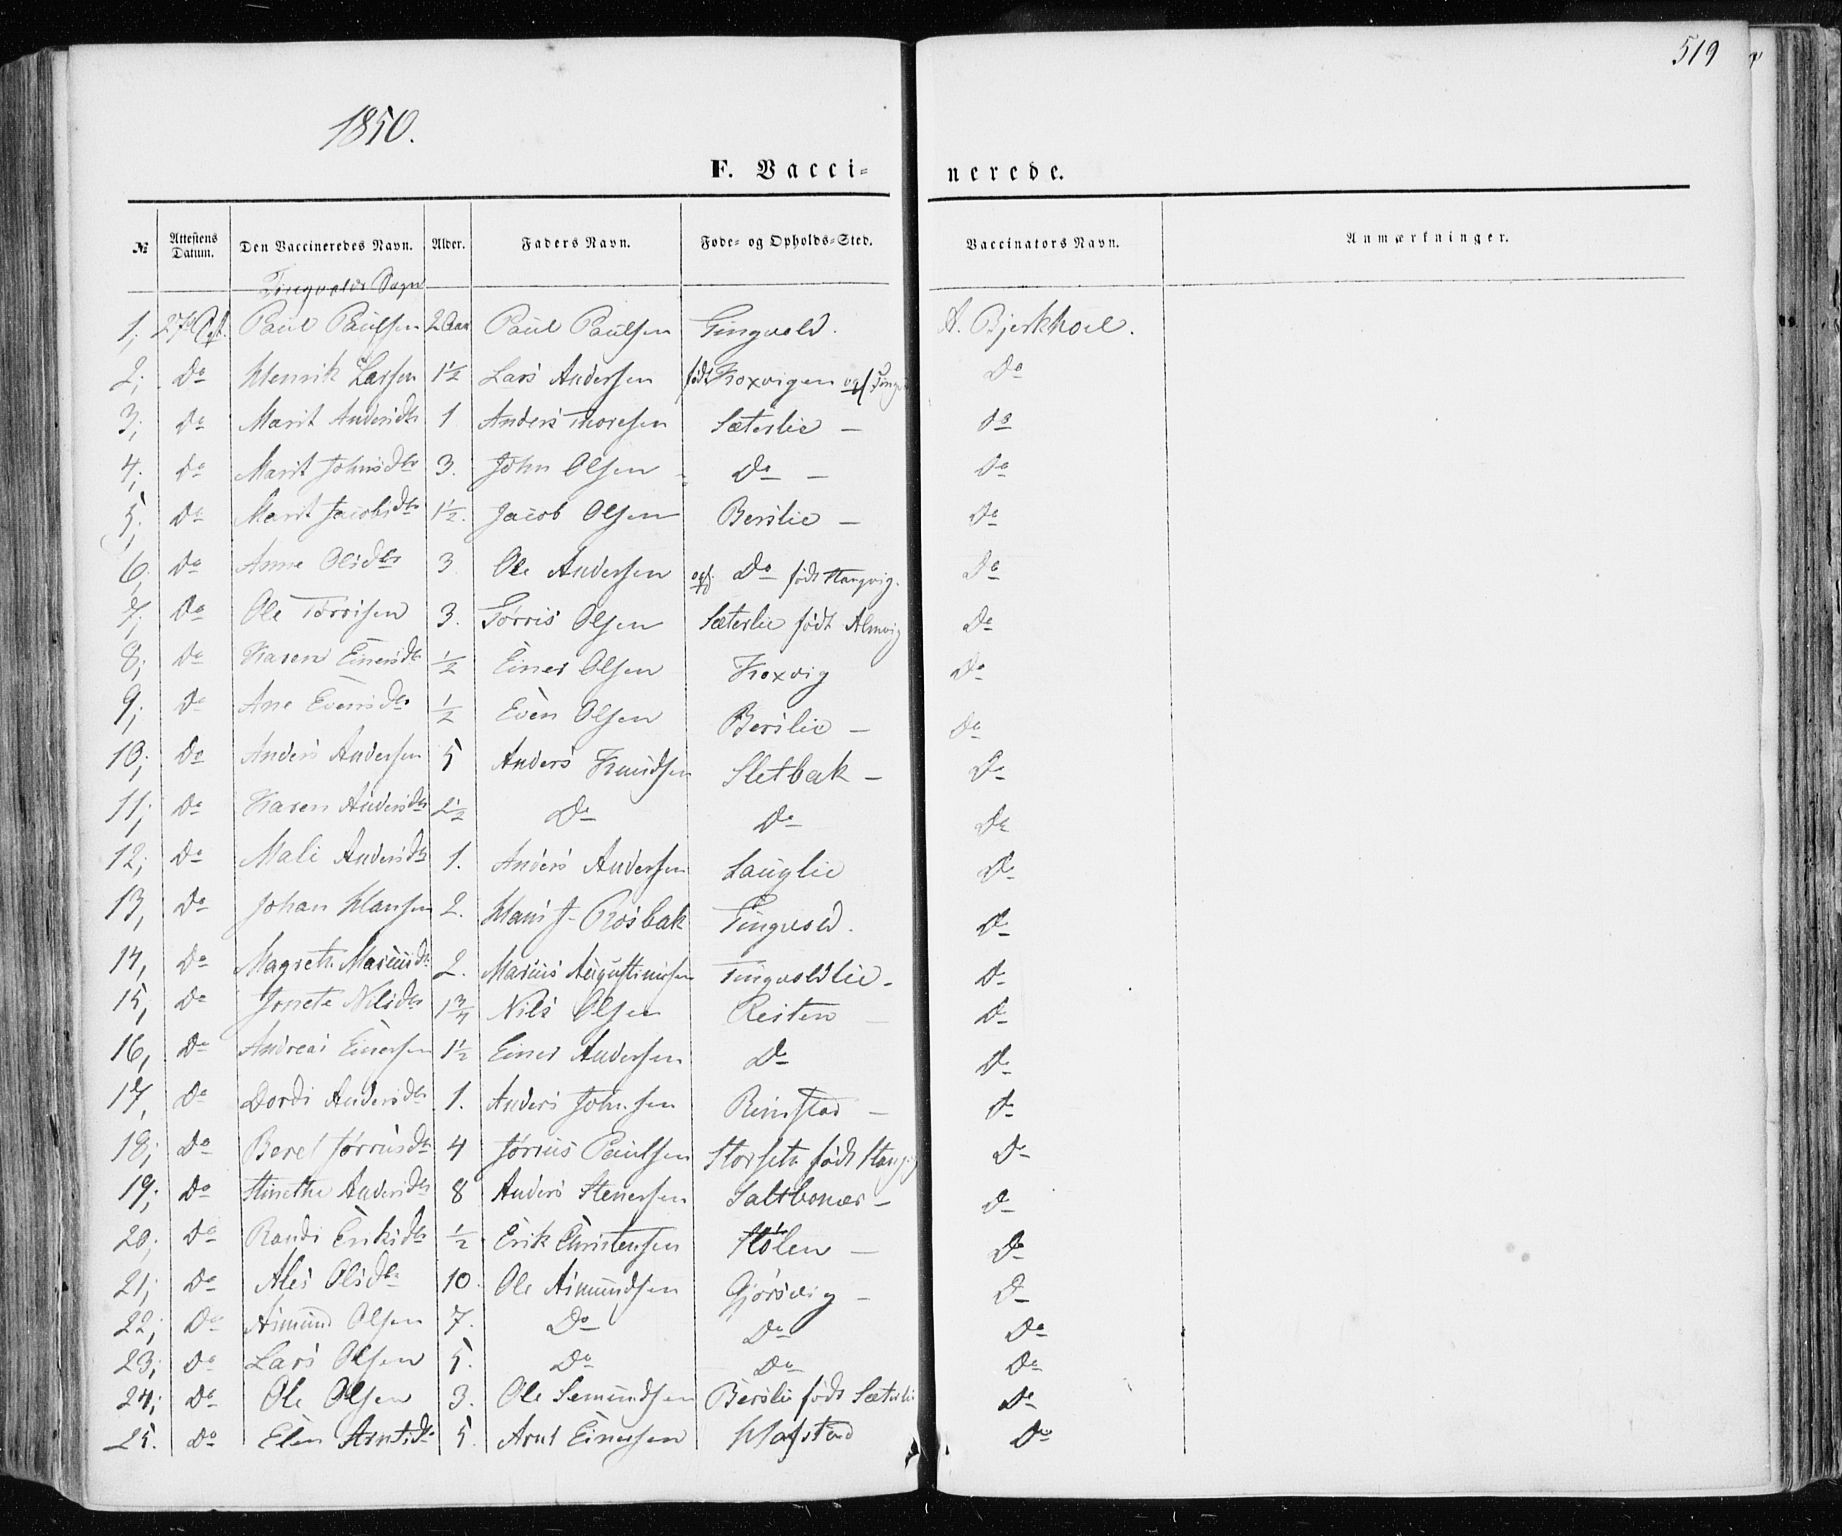 519
1850.
F. Vacci- nerede.
№ Attestens Datum. Den Vaccineredes Navn. Alder. Faders Navn. Føde- og Opholds-Sted. Vaccinators Navn. Anmærkninger.
Tingvolds Sogn
1, 27de Paul Paulsen 2 Aar Paul Paulsen Tingvold. A. Bjerkhoel.
2, Do Henrik Larsen 1½ Lars Andersen født Koxvigen Do
3, do Marit Andersdtr 1 Anders Thoresen Sæterlie – do
4, do Marit Johnsdtr 3. John Olsen Do – Do
5, Do Marit Jacobsdtr 1½. Jacob Olsen Berslie – Do
6, Do Anne Olsdtr 3 Ole Andersen opf. Do født Stangvig. Do
7, Do Ole Tørrisen 3. Tørris Olsen Sæterlie født Alnvig Do
8, Do Karen Einersdtr ½ Einer Olsen Koxvig Do
9, Do Ane Evensdtr ½ Even Olsen Berslie – Do
10, Do Anders Andersen 5 Anders Knudsen Sletbak – Do
11, Do Karen Andersdtr 2½ Do Do Do
12, Do Mali Andersdtr 1. Anders Andersen Lauglie Do
13, Do Johan Hansen 2. Hans J. Rosbak Tingvold. Do
14, Do Magreth Mariusdtr 2. Marius Augustinusen Tingvoldlie – Do
15, Do Jonete Nilsdtr 1¾ Nils Olsen Reiten – Do
16, Do Andreas Einersen 1½ Einer Andersen Do Do
17, Do Dordi Andersdtr 1. Anders Johnsen Rimstad – Do
18, Do Beret Jørrusdtr 4 Jørrus Paulsen Storseth født Stangvig Do
19, Do Stinethe Andersdtr 8 Anders Stenersen Saltbonæs – Do
20, Do Randi Eriksdtr ½ Erik Christensen Stølen – Do
21, Do Ales Olsdtr 10. Ole Asmundsen Gjørsvig – Do
22, Do Asmund Olsen 7. Do Do Do
23, Do Lars Olsen 5. Do Do Do
24, Do Ole Olsen 3. Ole Semundsen Berslie født Sæterlie Do
25. Do Elen Arntsdtr 5. Arnt Einersen Hafstad Do